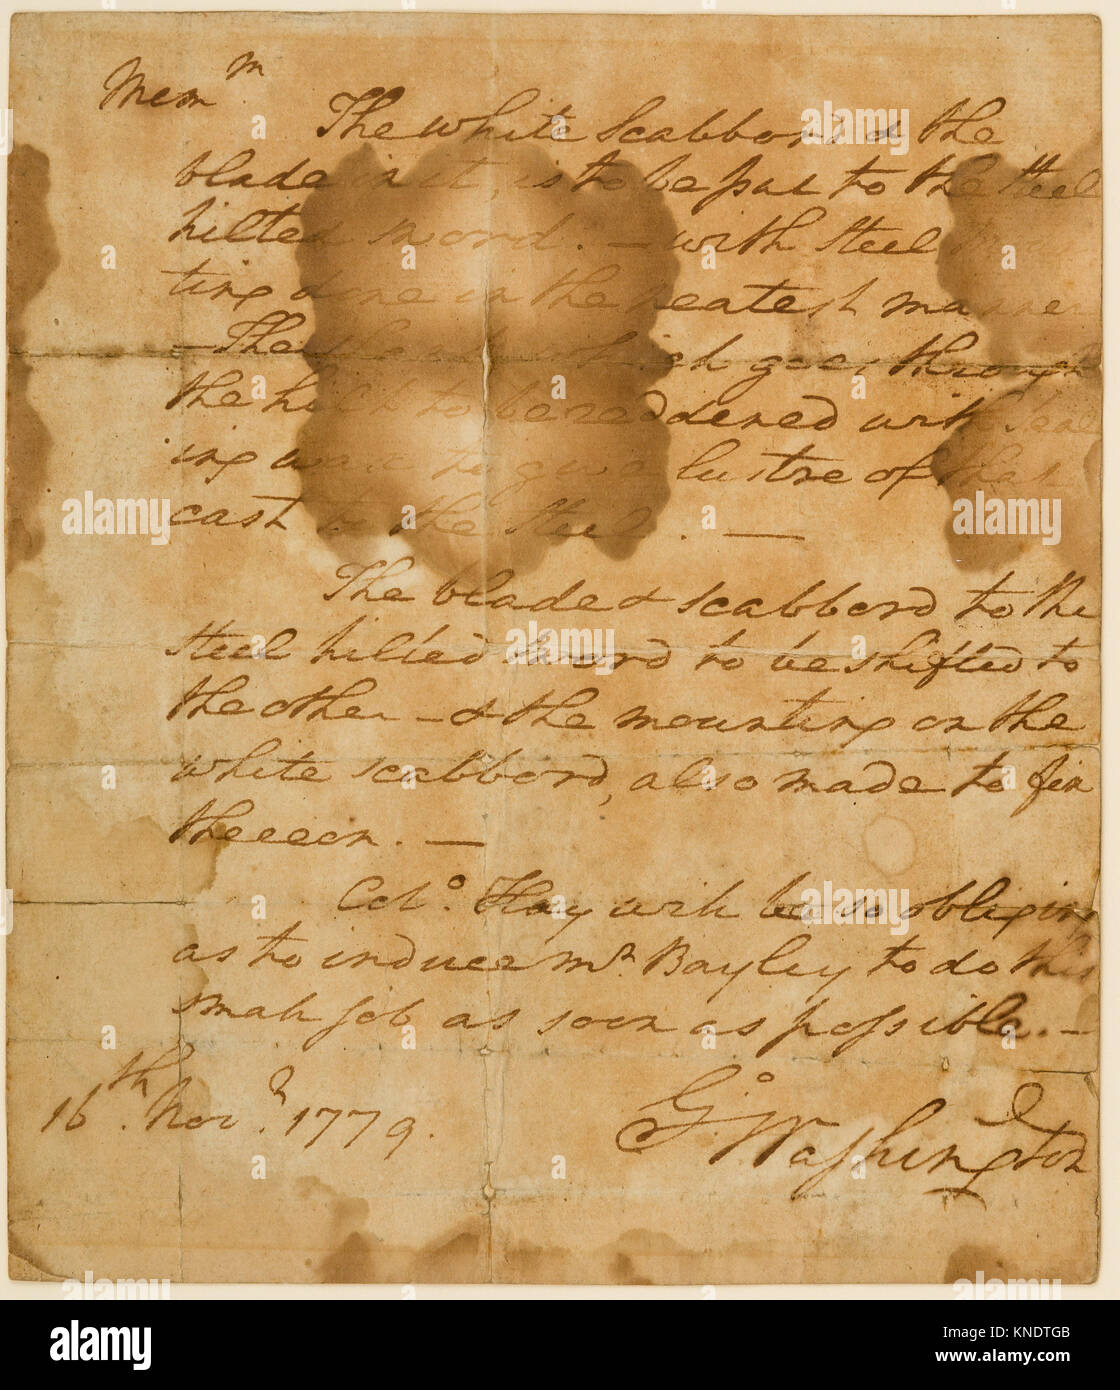 Mem.m
The white Scabbord & the
blade in it, is to be put to the Steel
hilted sword. — with Steel
ting done in the neatest manner
— The which goes through
the hilt to be reddened with Seal
ing wax to give lustre of that
cast to the Steel. —
The blade & scabbord to the
Steel hilted Sword to be shifted to
the other — & the mounting on the
white scabbord, also made to fix
thereon. —
Colo. Hay will be so obliging
as to induce Mr. Bayley to do this
small job as soon as possible. —
Go. Washington
16th. Novr. 1779.
alamy
Image ID: KNDTGB
www.alamy.com